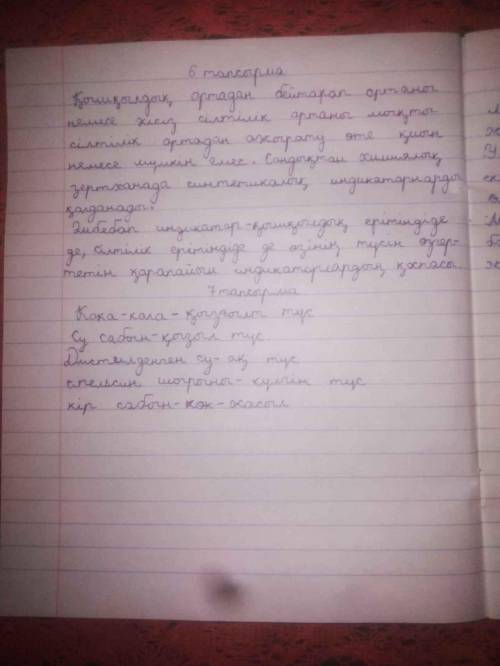 6 тапсырма
Қышқылдық ортадан бейтарап ортаны
немесе әлсіз сілтілік ортаны мықты
сілтілік ортадан ажырату өте қиын
немесе мүмкін емес. Сондықтан химиялық
зертханада синтетикалық индикаторларды
қолданады.
Әмбебап индикатор-қышқылдық ерітіндіде
де, сілтілік ерітіндіде де өзінің түсін өзгер-
тетін қарапайым индикаторлардың қоспасы.
7 тапсырма
Кока-кола - қызғылт түс
Су сабын-қызыл түс
Дистилденген су- ақ түс
апельсин шырыны- күлгін түс
кір сабын-көк-жасыл